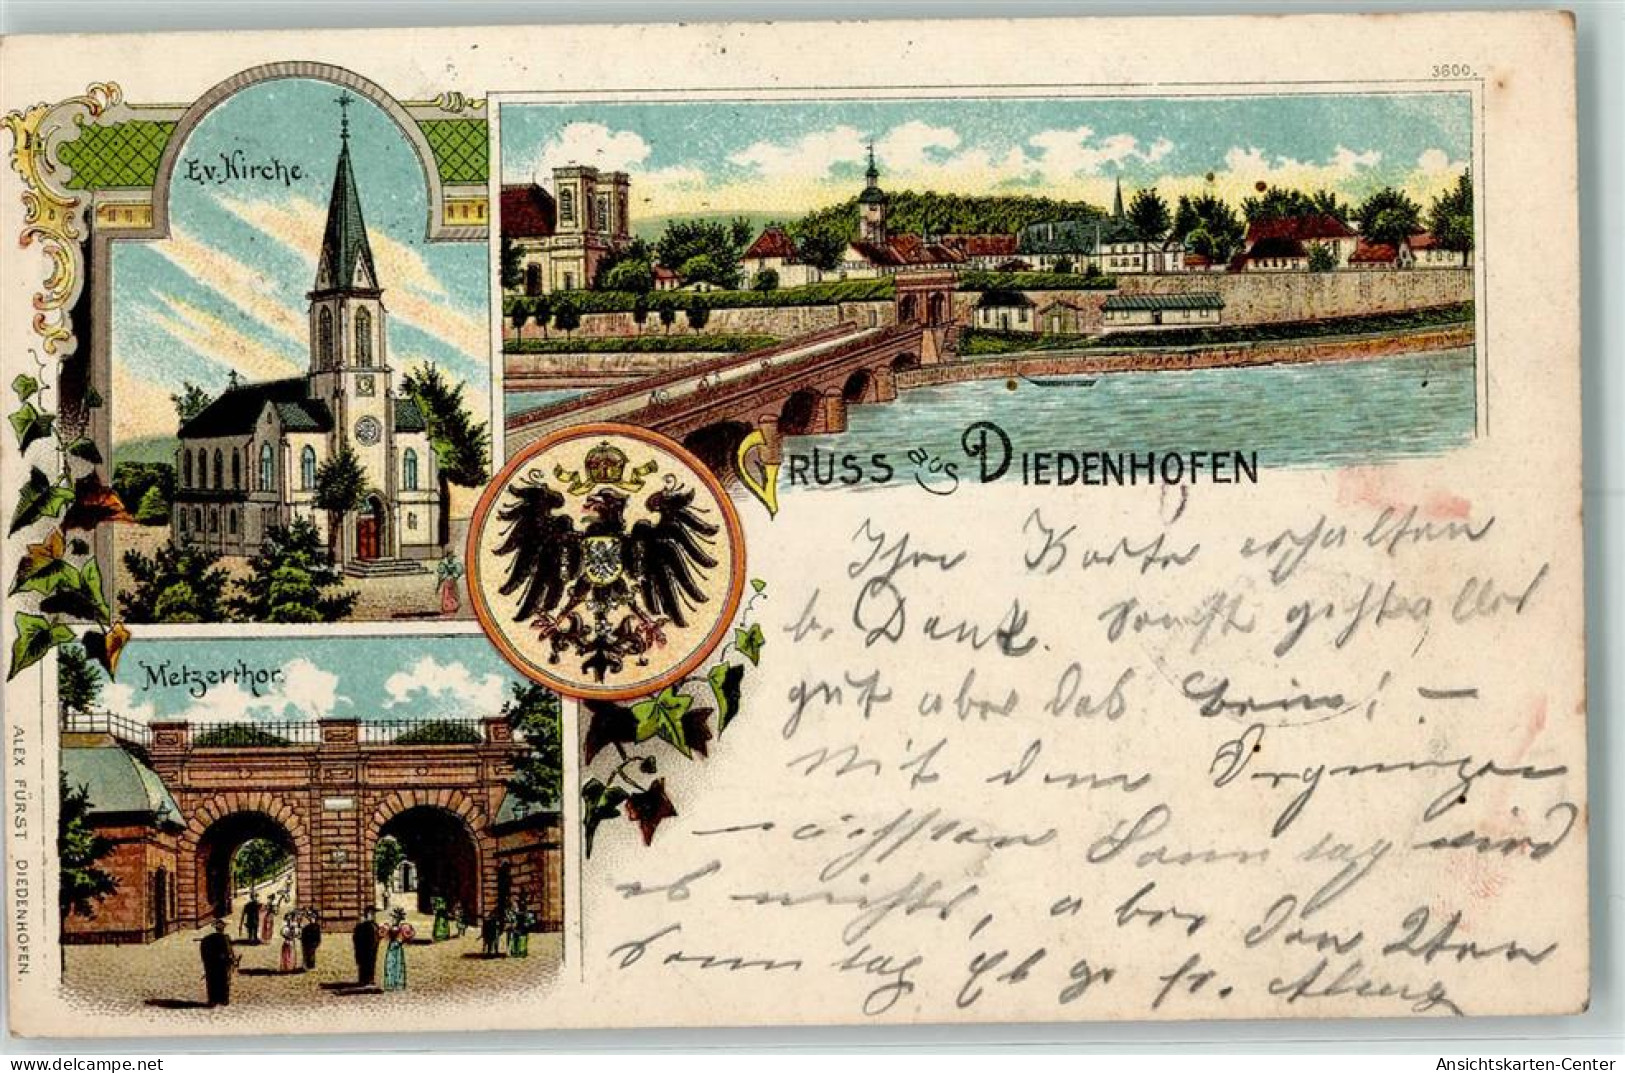 3600.
Ev. Kirche.
GRUSS aus DIEDENHOFEN
Metzerthor.
ALEX FÜRST DIEDENHOFEN.
Ihre Karte erhalten
b. Dank. Sonst geht alles
gut aber das Bein! –
Mit dem
nächsten Sonntag wird
es nichts, aber den 2ten
Sonntag
delcampe.net
Ansichtskarten-Center